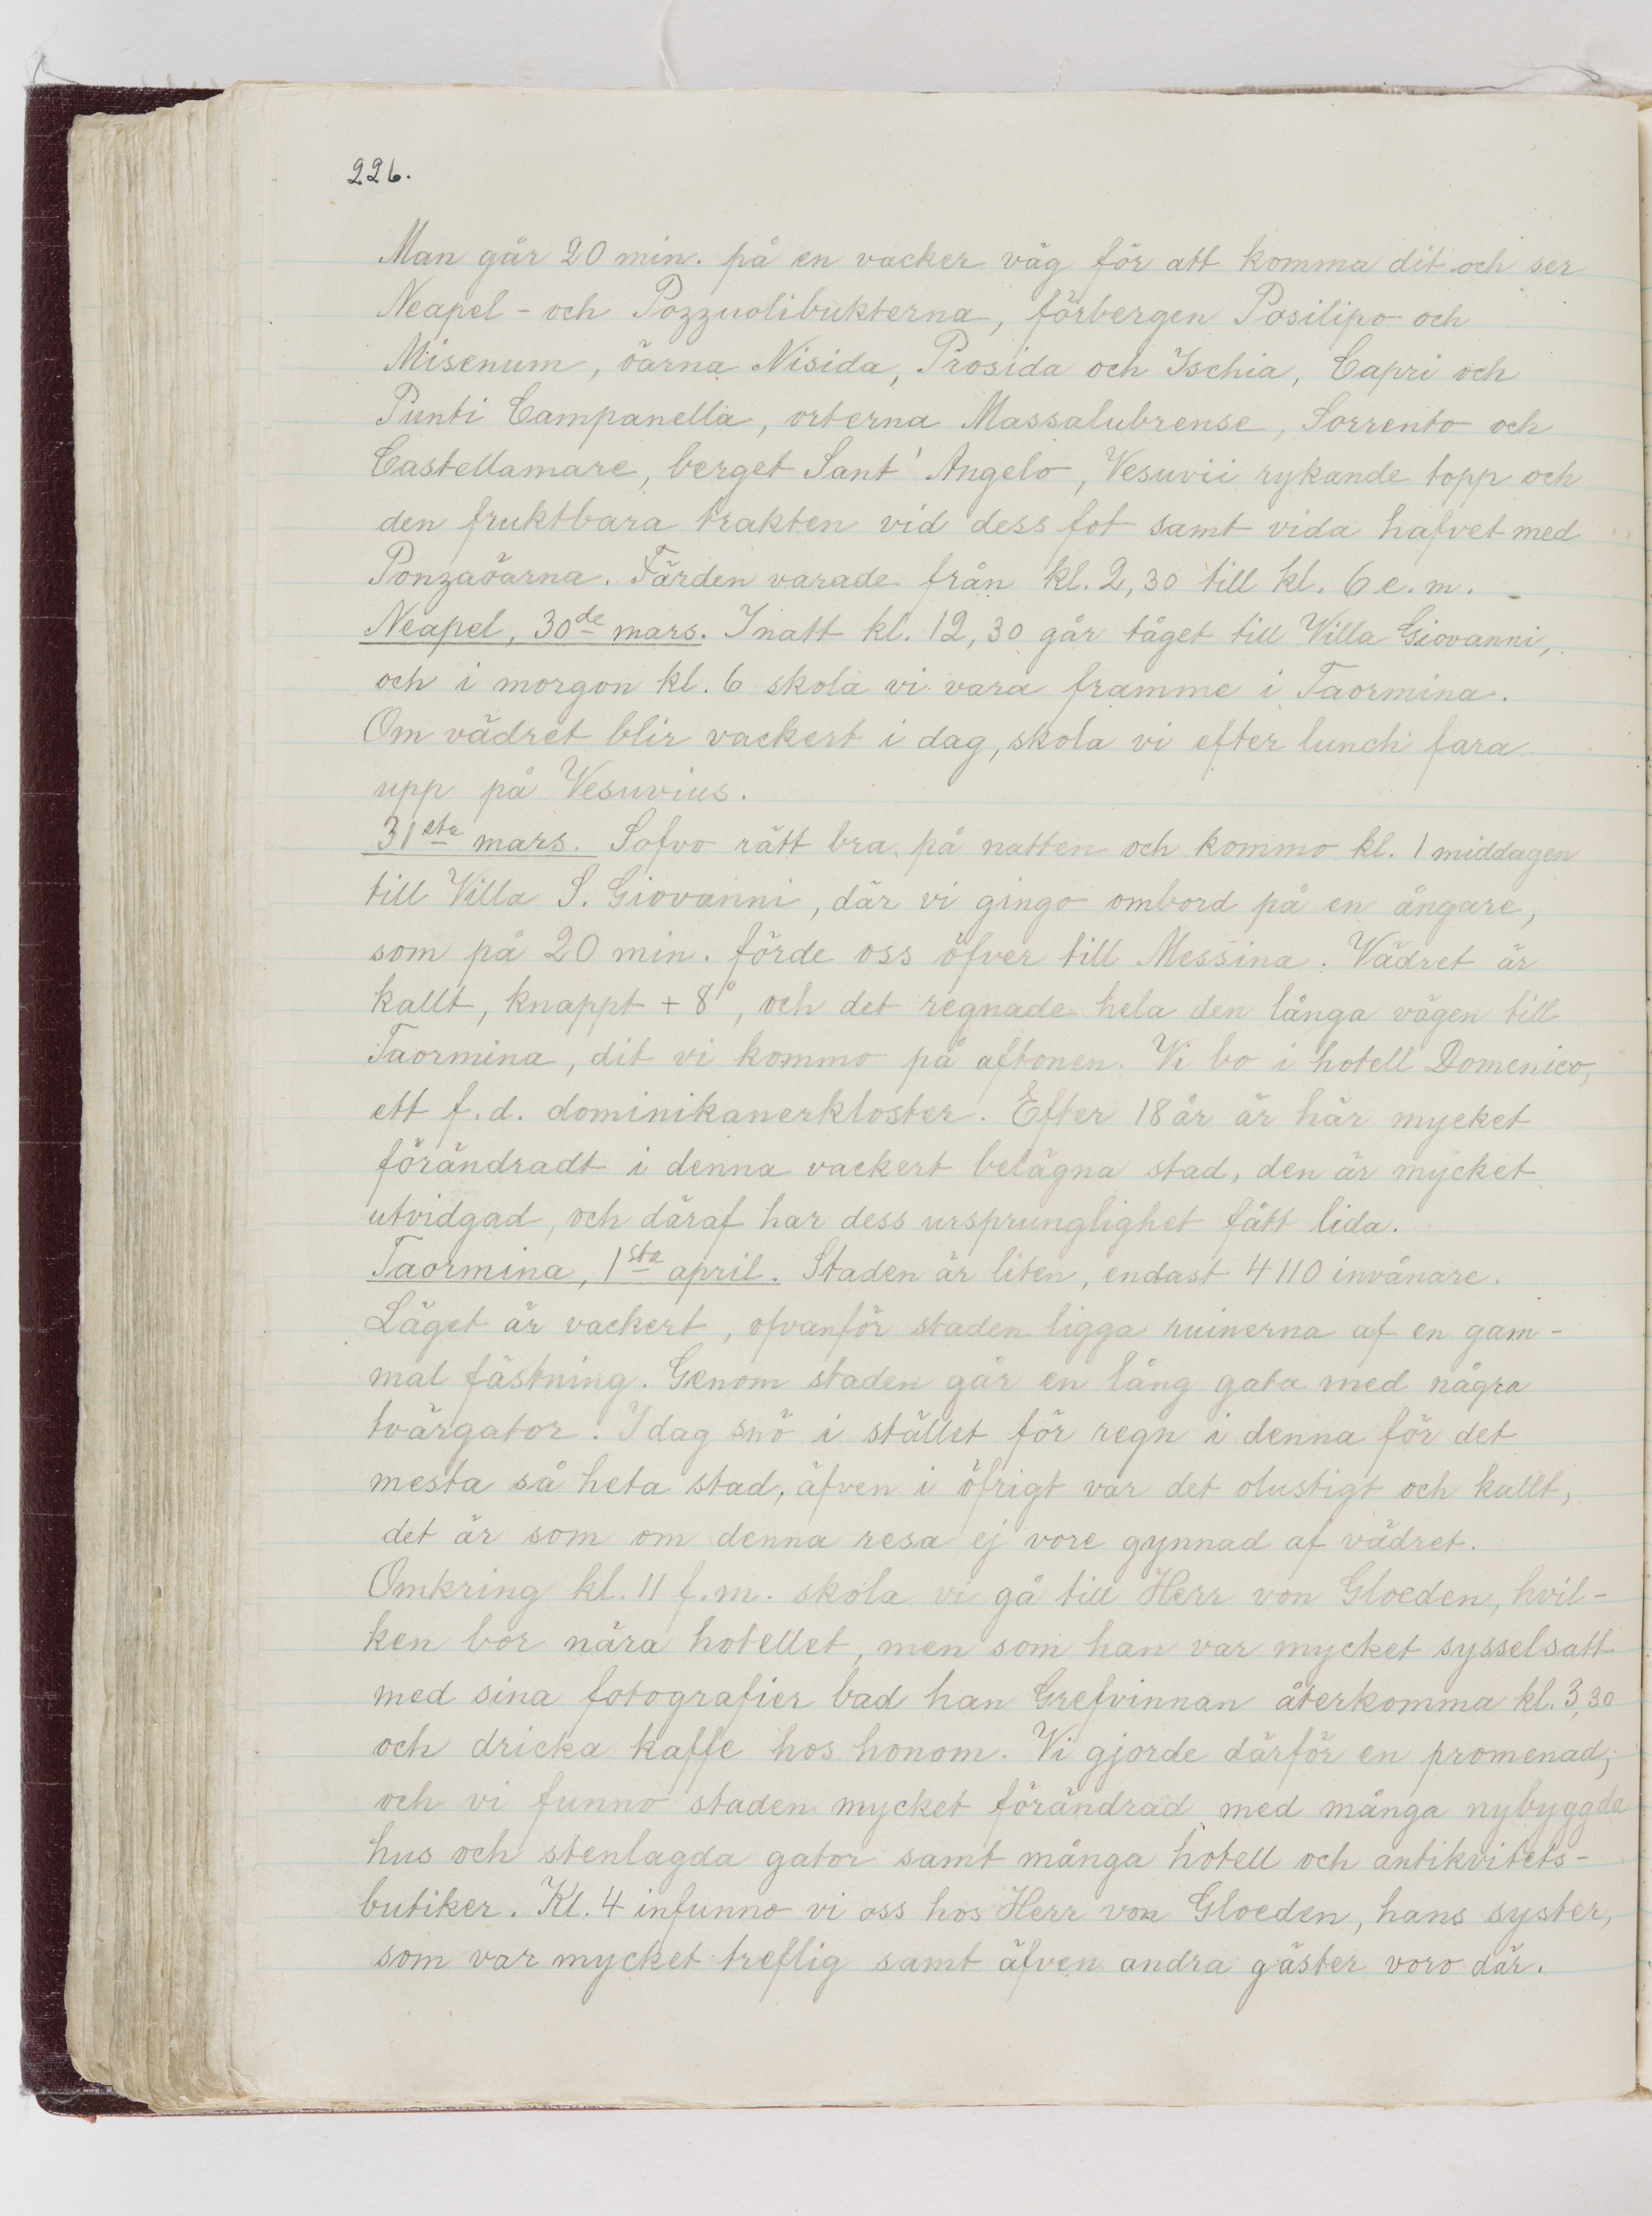 226.
Man går 20 min. på en vacker väg för att komma dit och ser
Neapel- och Pozzuolibukterna, förbergen Posilipo och
Misenum, öarna Nisida, Prosida och Ischia, Capri och
Punti Campanella, orterna Massalubrense, Sorrento och
Castellamare, berget Sant' Angelo, Vesuvii rykande topp och
den fruktbara trakten vid dess fot samt vida hafvet med
Ponzaöarna. Färden varade från kl. 2,30 till kl. 6 e. m. -
Neapel, 30de mars. I natt kl. 12,30 går tåget till Villa Giovanni,
och i morgon kl. 6 skola vi vara framme i Taormina.
Om vädret blir vackert i dag, skola vi efter lunch fara
upp på Vesuvius.
31sta mars. Sofvo rätt bra på natten och kommo kl. 1 middagen
till Villa S. Giovanni, där vi gingo ombord på en ångare,
som på 20 min. förde oss öfver till Messina. Vädret är
kallt, knappt + 8°, och det regnade hela den långa vägen till
Taormina, dit vi kommo på aftonen. Vi bo i hotell Domenico,
ett f. d. dominikanerkloster. Efter 18 år är här mycket
förändradt i denna vackert belägna stad, den är mycket
utvidgad, och däraf har dess ursprunglighet fått lida.
Taormina, 1sta april. Staden är liten, endast 4110 invånare.
Läget är vackert, ofvanför staden ligga ruinerna af en gam-
mal fästning. Genom staden går en lång gata med några
tvärgator. I dag snö i stället för regn i denna för det
mesta så heta stad, äfven i öfrigt var det olustigt och kallt,
det är som om denna resa ej vore gynnad af vädret.
Omkring kl. 11 f. m. skola vi gå till Herr von Gloeden, hvil-
ken bor nära hotellet, men som han var mycket sysselsatt
med sina fotografier bad han Grefvinnan återkomma kl. 3,30
och dricka kaffe hos honom. Vi gjorde därför en promenad,
och vi funno staden mycket förändrad med många nybyggda
hus och stenlagda gator samt många hotell och antikvitets-
butiker. Kl. 4 infunno vi oss hos Herr von Gloeden, hans syster,
som var mycket treflig samt äfven andra gäster voro där.